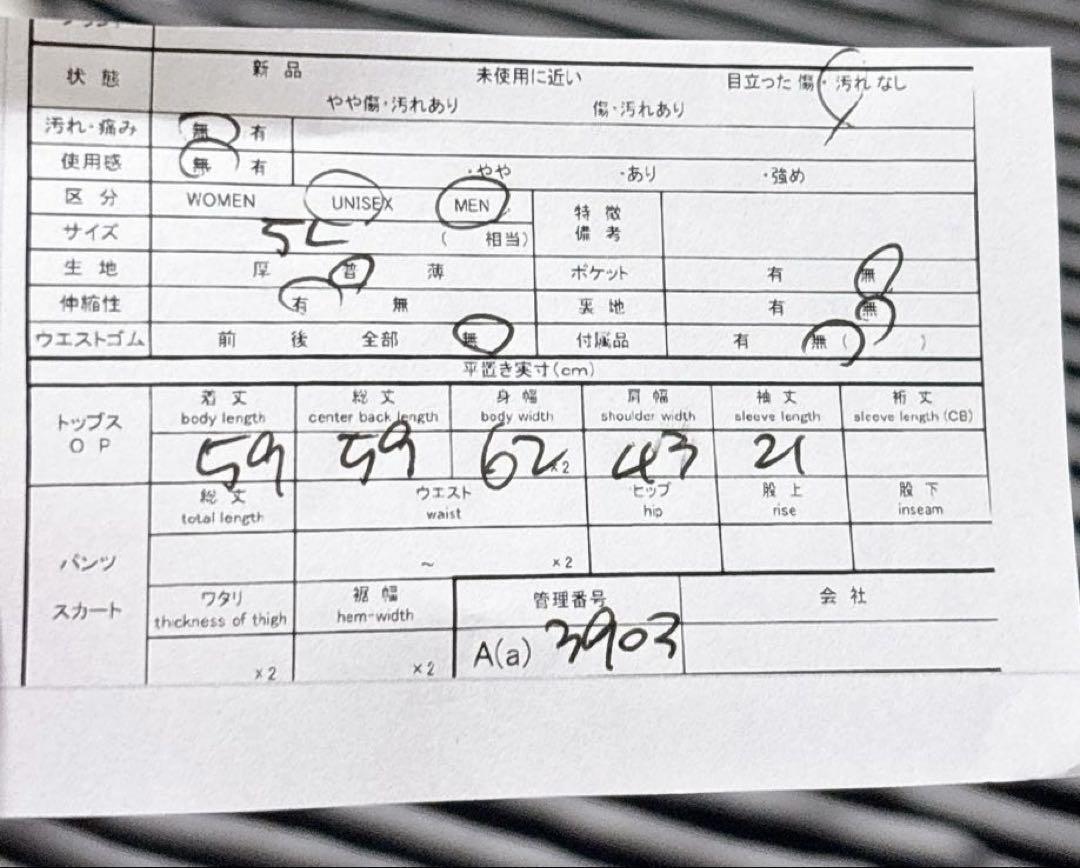 状態 新品 未使用に近い 目立った傷・汚れなし
やや傷・汚れあり 傷・汚れあり
汚れ・痛み 無 有
使用感 無 有 ・やや ・あり ・強め
区分 WOMEN UNISEX MEN 特徴
備考
サイズ 5L ( 相当)
生地 厚 普 薄 ポケット 有 無
伸縮性 有 無 裏地 有 無
ウエストゴム 前 後 全部 無 付属品 有 無 ( )
平置き実寸(cm)
トップス
OP
着丈 総丈 身幅 肩幅 袖丈 裄丈
body length center back length body width shoulder width sleeve length sleeve length (CB)
59 59 62 ×2 43 21
パンツ
スカート
総丈 ウエスト ヒップ 股上 股下
total length waist hip rise inseam
~ ×2
ワタリ 裾幅 管理番号 会社
thickness of thigh hem-width
×2 ×2 A(a) 3903